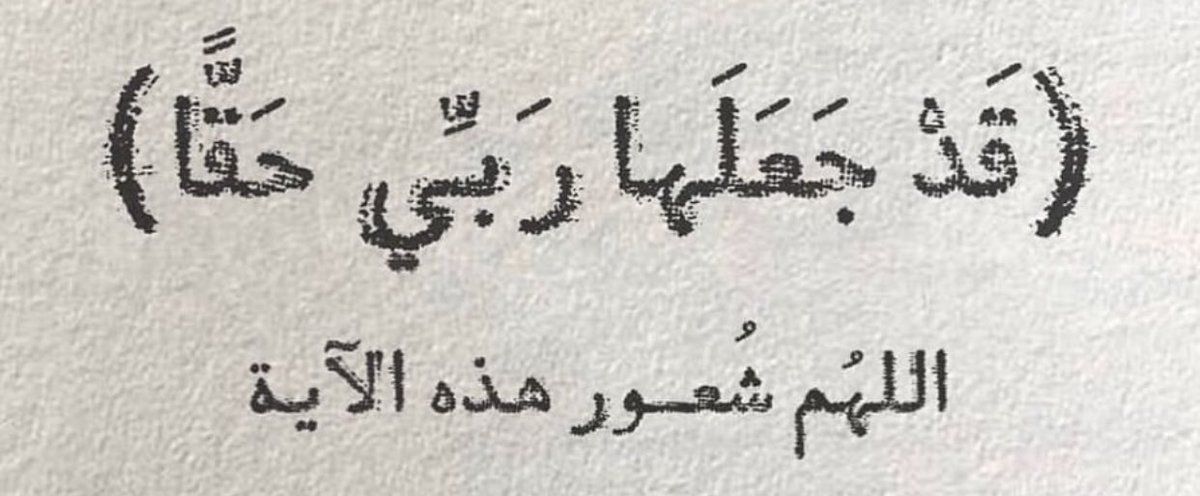 (قَدْ جَعَلَها رَبِّي حَقًّا)
اللهُم شُعـور هذه الآية